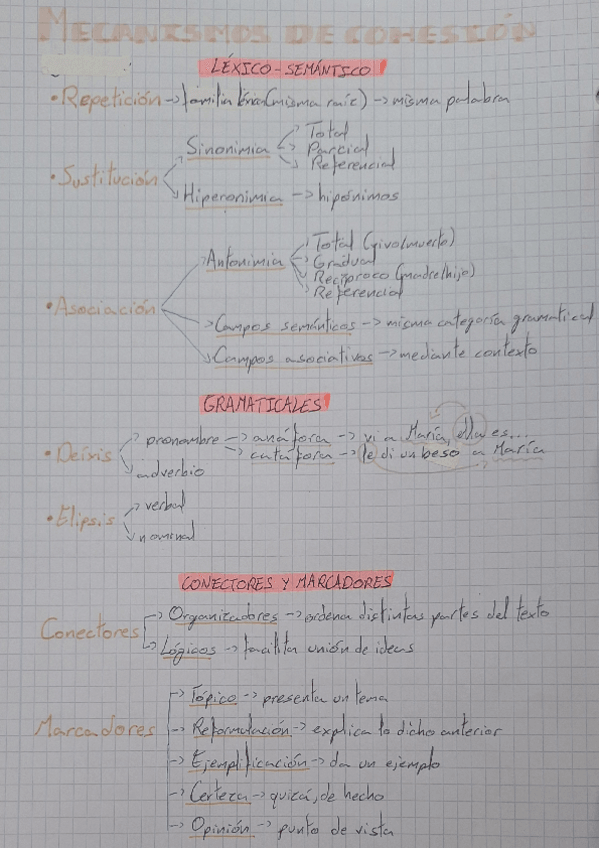 MECANISMOS DE COHESIÓN
LÉXICO-SEMÁNTICO
• Repetición -> familia léxica (misma raíz) -> misma palabra
• Sustitución
Sinonimia -> Total
-> Parcial
-> Referencial
Hiperonimia -> hipónimos
• Asociación
Antonimia -> Total (vivo/muerto)
-> Gradual
-> Recíproco (madre/hijo)
-> Referencial
Campos semánticos -> misma categoría gramatical
Campos asociativos -> mediante contexto
GRAMATICALES
• Deíxis
-> pronombre -> anáfora -> vi a María, ella es...
-> catáfora -> le di un beso a María
-> adverbio
• Elipsis
-> verbal
-> nominal
CONECTORES Y MARCADORES
Conectores
-> Organizadores -> ordena distintas partes del texto
-> Lógicos -> facilita unión de ideas
Marcadores
-> Tópico -> presenta un tema
-> Reformulación -> explica lo dicho anterior
-> Ejemplificación -> da un ejemplo
-> Certeza -> quizá, de hecho
-> Opinión -> punto de vista